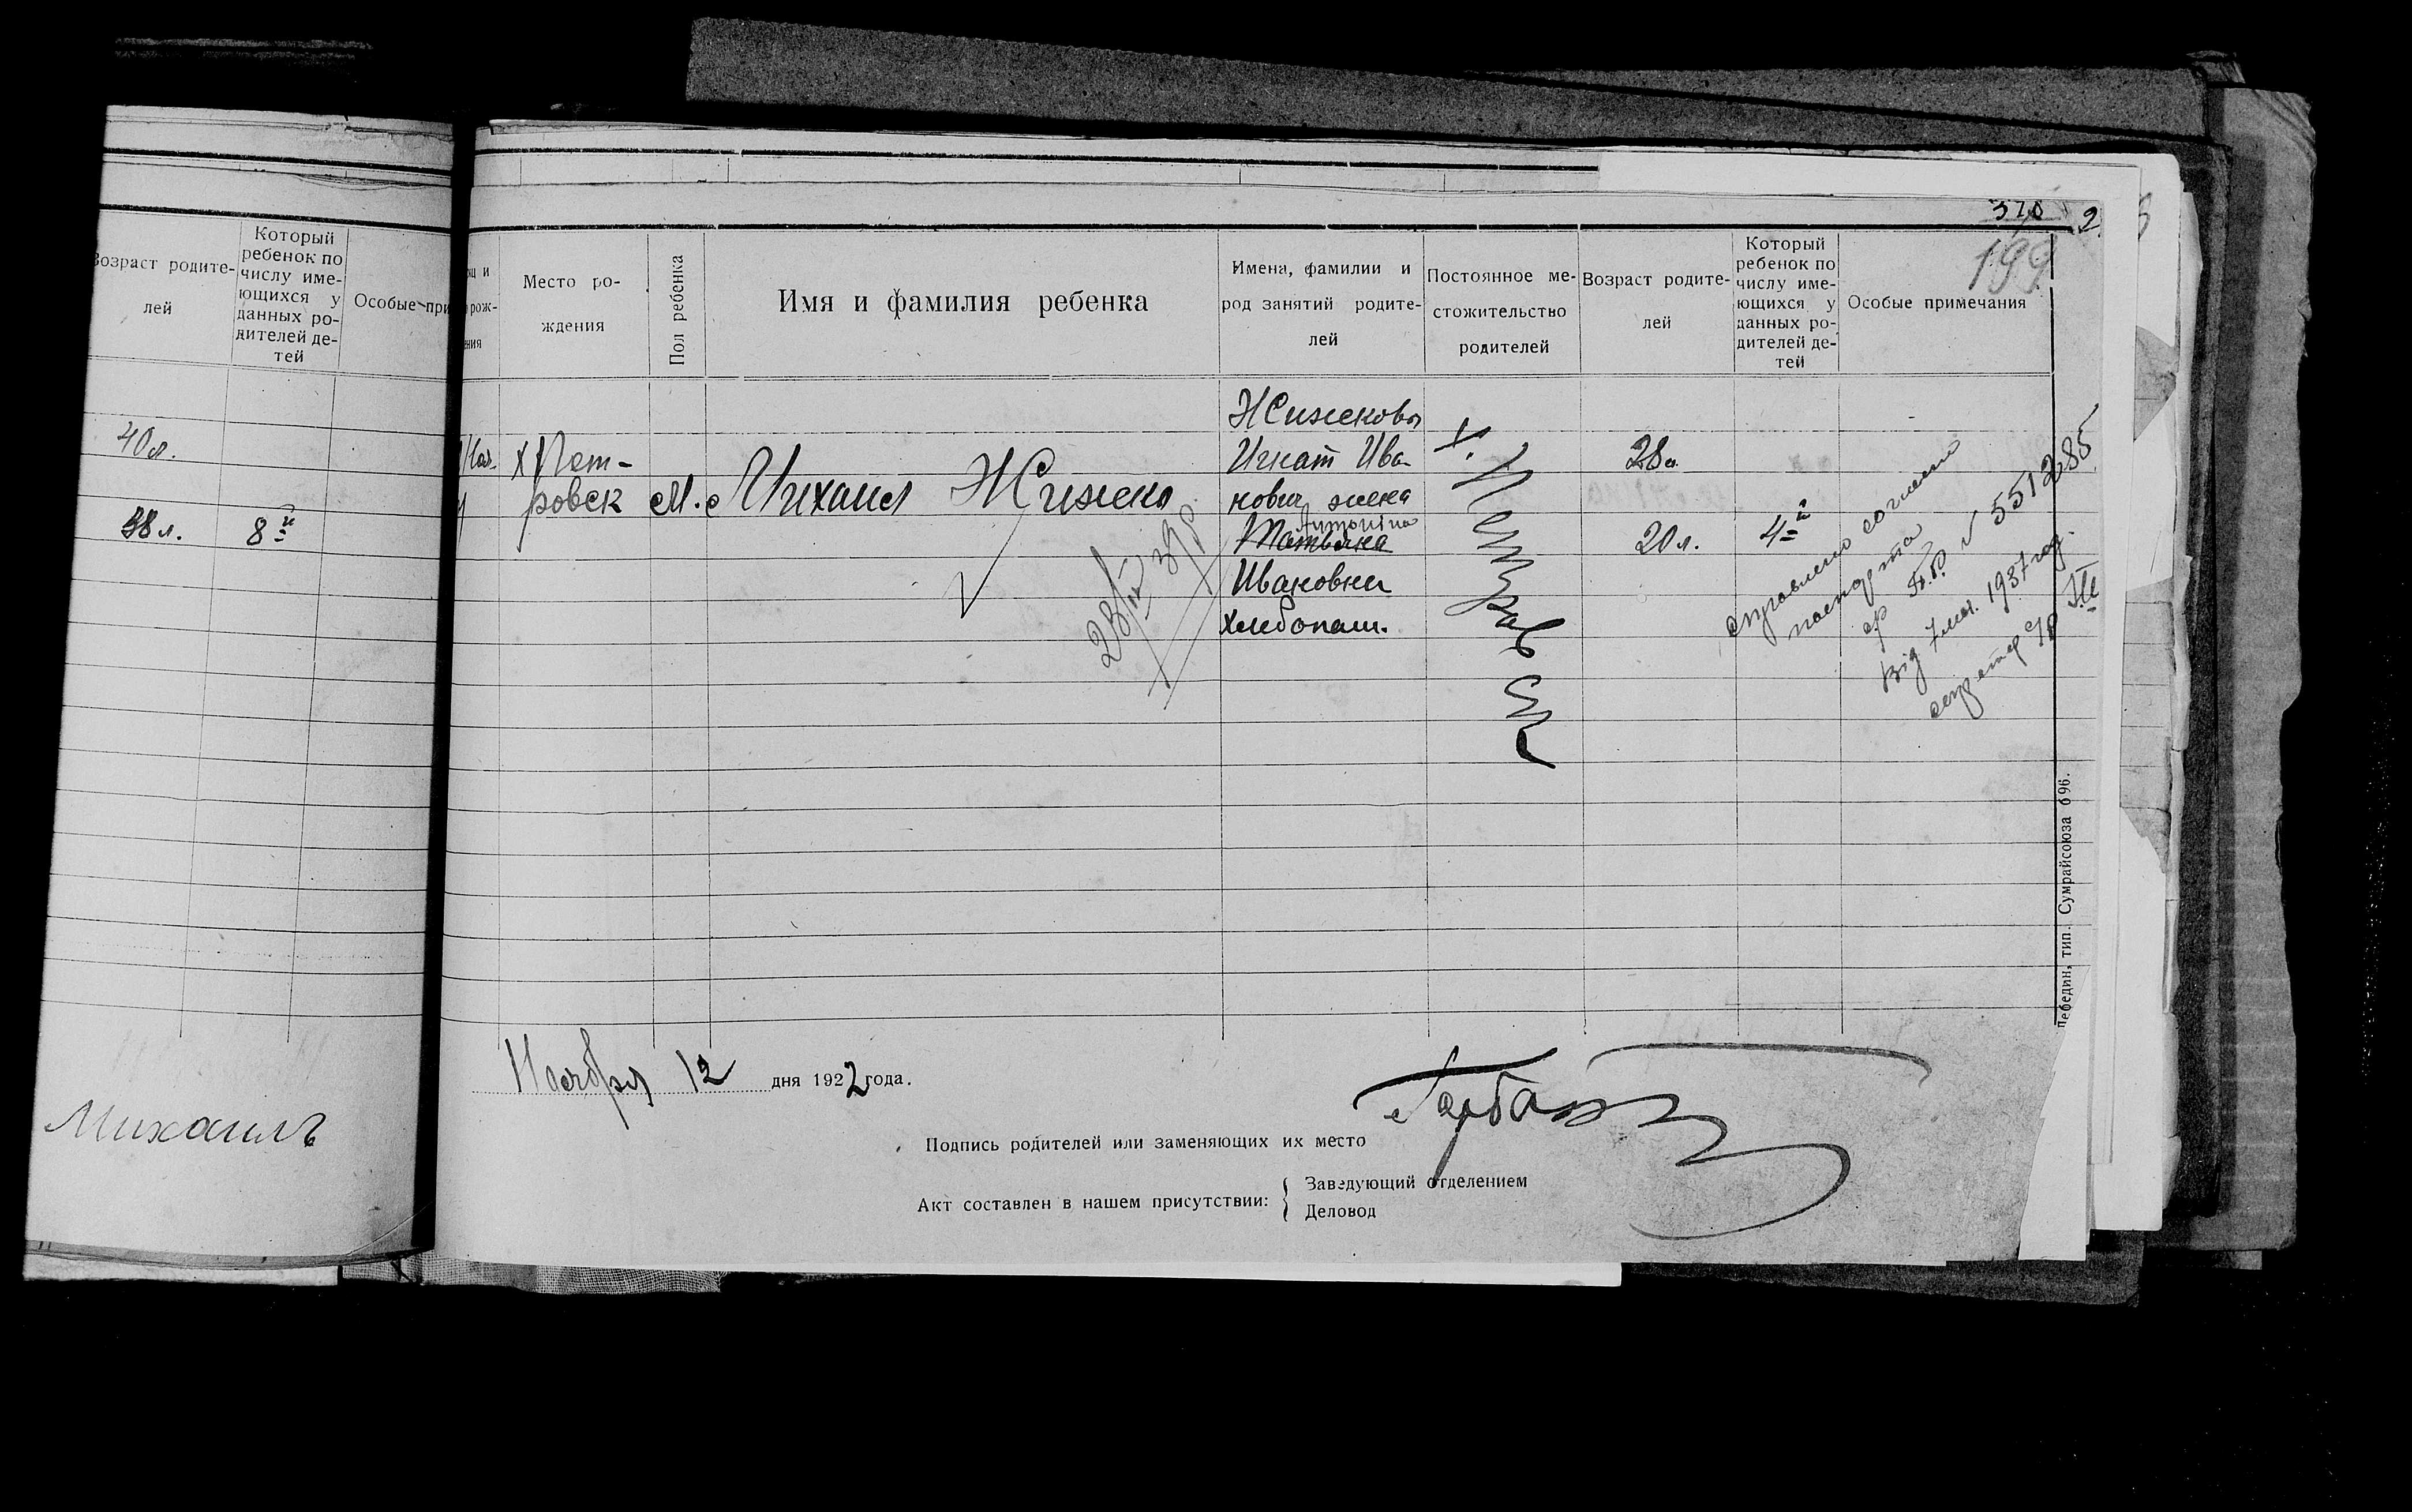 Возраст родите-
лей
Который
ребенок по
числу име-
ющихся у
данных ро-
дителей де-
тей
Особые при
40 л.
38 л.
8й
Михаилъ
2
199
Место ро-
ждения
Пол ребенка
Имя и фамилия ребенка
Имена, фамилии и
род занятий родите-
лей
Постоянное ме-
стожительство
родителей
Возраст родите-
лей
Который
ребенок по
числу име-
ющихся у
данных ро-
дителей де-
тей
Особые примечания
х Пет-
ровск
м.
Михаил Жижеко
Жижековы
Игнат Ива-
нович жена
Антонина
Татьяна
Ивановна
хлебопаш.
х. Петровск
28 л.
20 л.
4й
справлено согласно
паспорта
№ 551285
від 7 мая 1937 год.
Лебедин, тип. Сумрайсоюза 696.
Ноября 12 дня 1922 года.
Подпись родителей или заменяющих их место
Акт составлен в нашем присутствии:
Заведующий отделением
Деловод